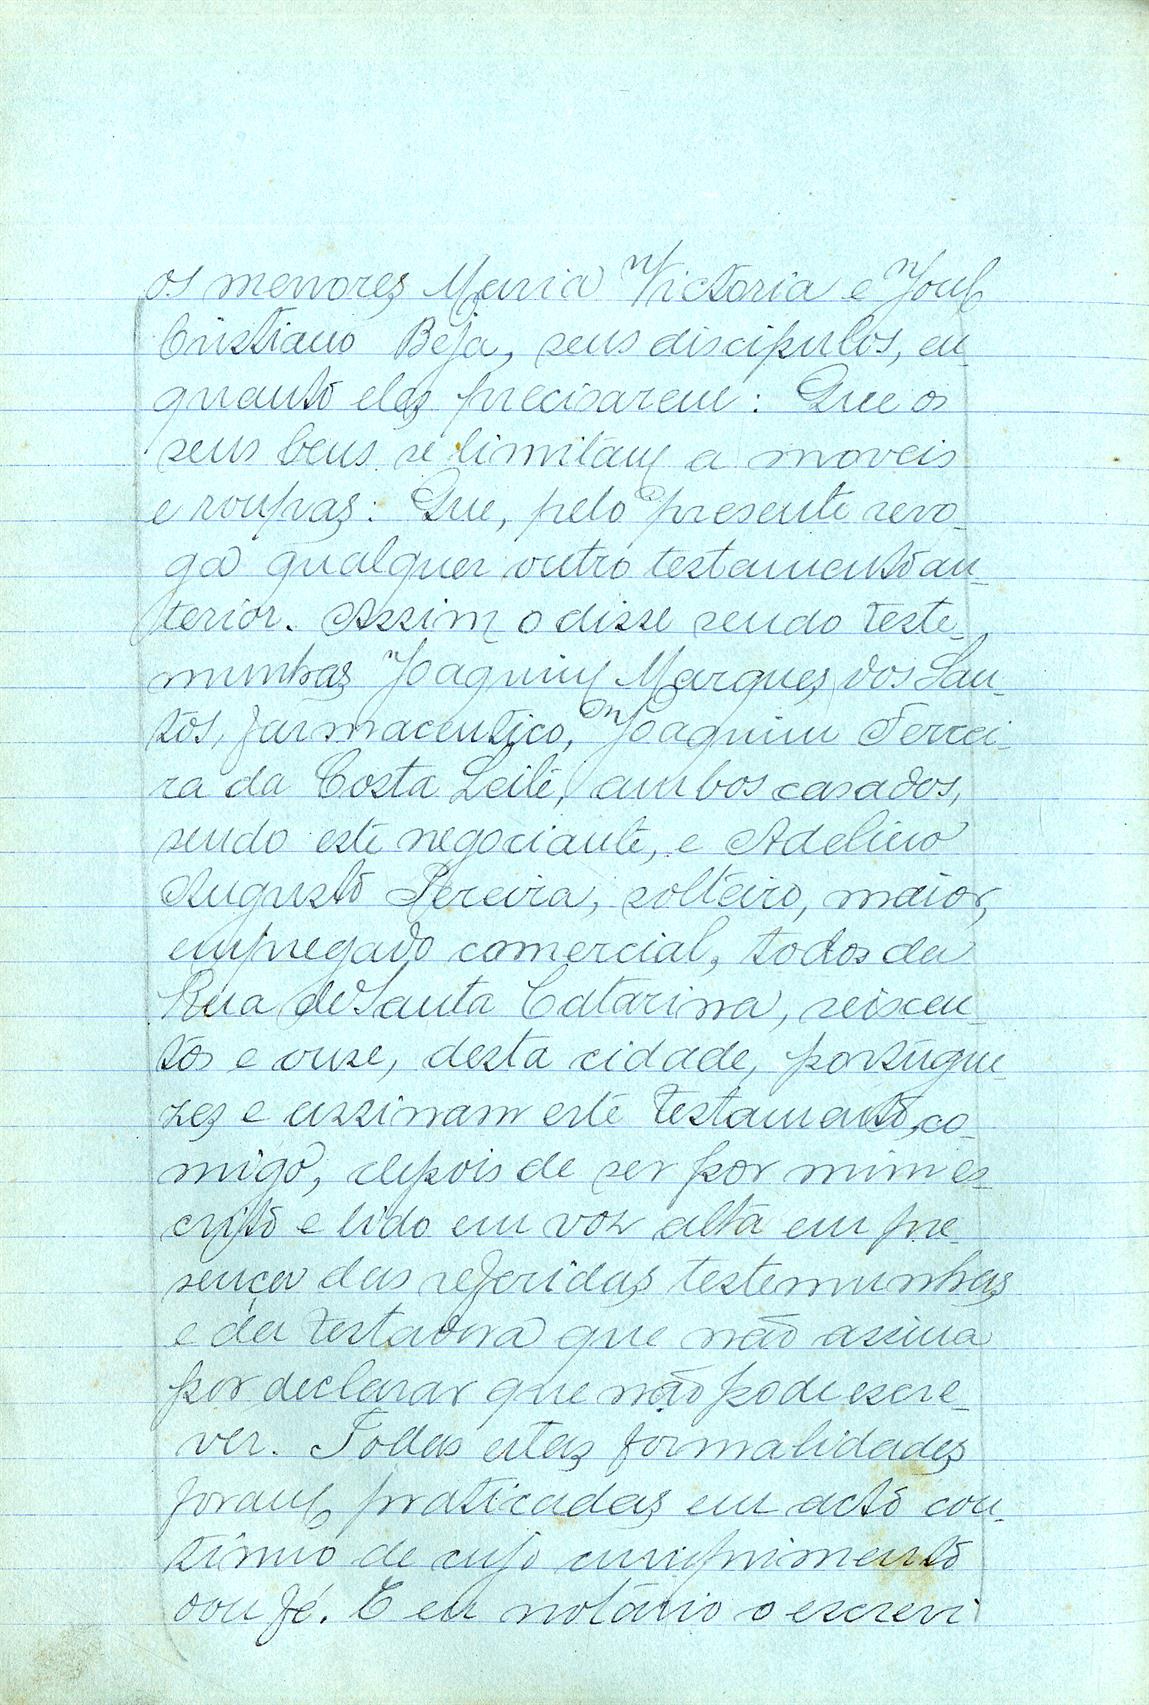 os menores Maria Victoria e José
Cristiano Beja, seus discipulos, en
quanto eles precisarem: Que os
seus bens se limitam a moveis
e roupas: Que, pelo presente revo-
ga qualquer outro testamento an-
terior. Assim o disse sendo teste-
munhas Joaquim Marques dos San-
tos, farmaceutico, Joaquim Ferrei-
ra da Costa Leite, ambos casados,
sendo este negociante, e Adelino
Augusto Pereira, solteiro, maior,
empregado comercial, todos da
Rua de Santa Catarina, seiscen-
tos e onse, desta cidade, portugue-
zes e assinam este testamento, co-
migo, depois de ser por mim es-
crito e lido em voz alta em pre-
sença das referidas testemunhas
e da testadora que não assina
por declarar que não pode escre-
ver. Todas estas formalidades
foram praticadas em acto con-
tinuo de cujo cumprimento
dou fé. E eu notário o escrevi